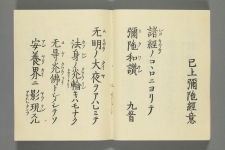 已上彌陀經意
諸經ノコヽロニヨリテ
彌陀和讚 九首
无明ノ大夜ヲアハレミテ
法身ノ光輪キハモナク
无㝵光佛トシメシテソ
安養界ニ影現スル